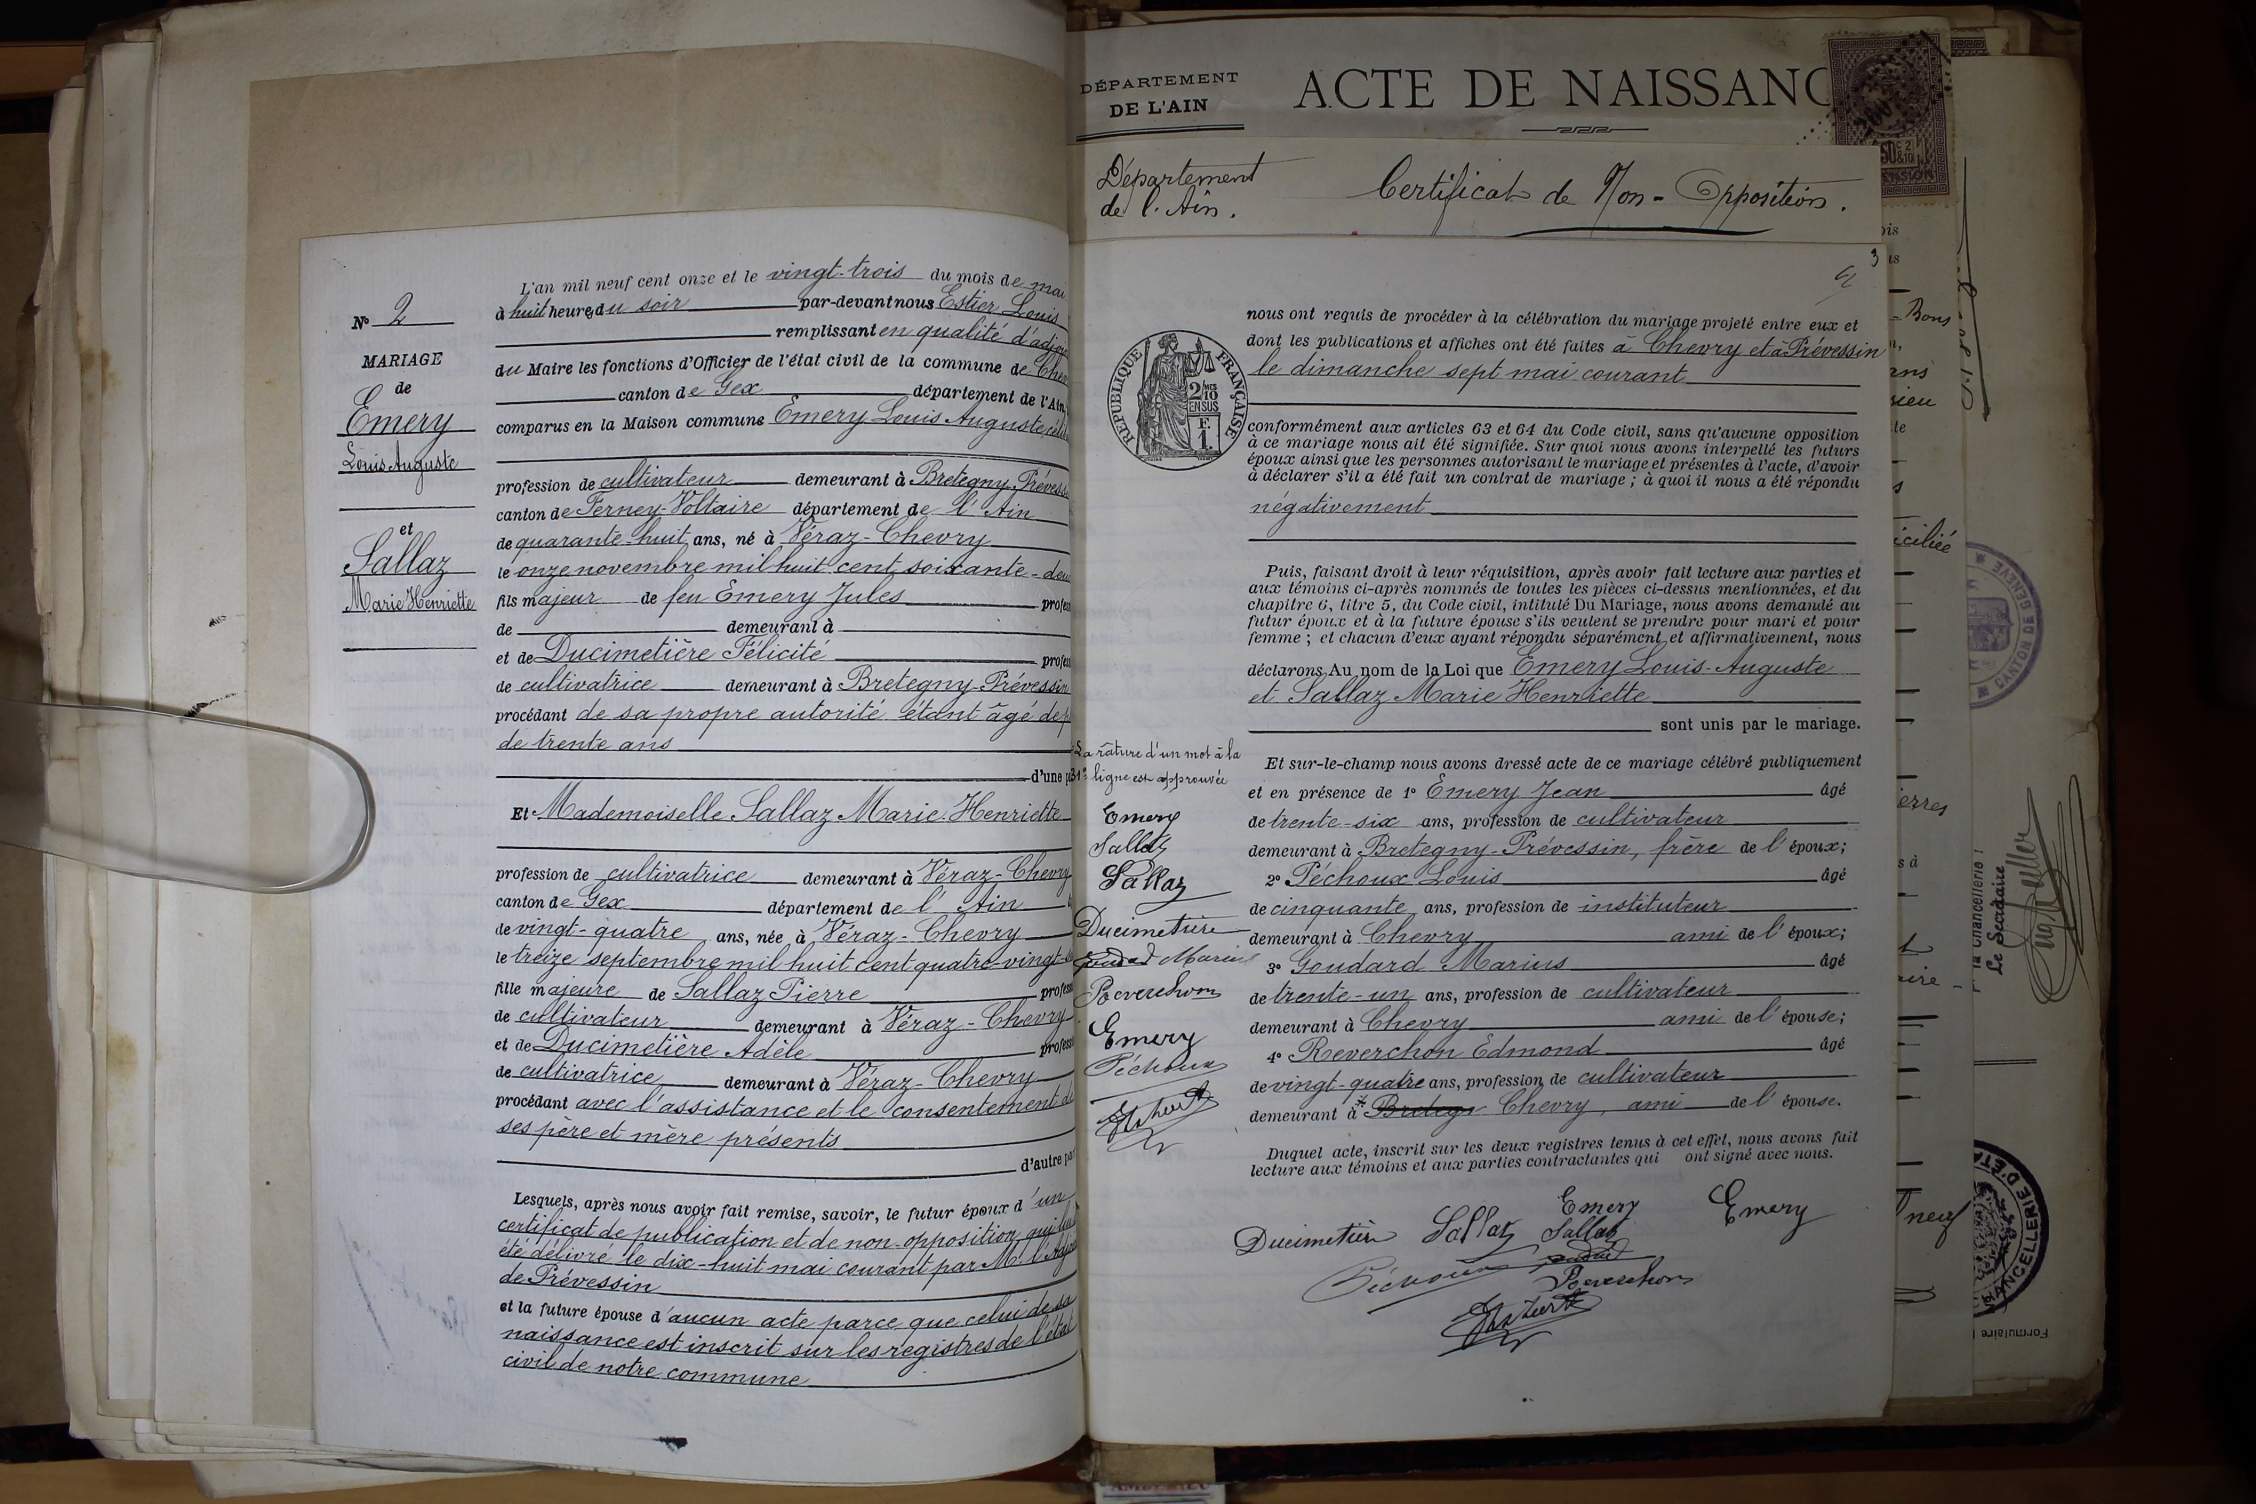 N° 2
MARIAGE
de
Emery
Louis Auguste
et
Sallaz
Marie Henriette
L'an mil neuf cent onze et le vingt-trois du mois de mai
à huit heures du soir par-devant nous Estier Louis
remplissant en qualité d'adjoin
du Maire les fonctions d'Officier de l'état civil de la commune de Chev
canton de Gex département de l'Ain,
comparus en la Maison commune Emery Louis Auguste céli
profession de cultivateur demeurant à Bretegny-Prévess
canton de Ferney-Voltaire département de l'Ain
de quarante-huit ans, né à Véraz-Chevry
le onze novembre mil huit cent soixante-deu
fils majeur de feu Emery Jules profes
de demeurant à
et de Ducimetière Félicité profes
de cultivatrice demeurant à Bretegny-Prévessin
procédant de sa propre autorité étant âgé de p
de trente ans
d'une p
Et Mademoiselle Sallaz Marie Henriette
profession de cultivatrice demeurant à Véraz-Chevry
canton de Gex département de l'Ain
de vingt-quatre ans, née à Véraz-Chevry
le treize septembre mil huit cent quatre-vingt-
fille majeure de Sallaz Pierre profess
de cultivateur demeurant à Véraz-Chevry
et de Ducimetière Adèle profess
de cultivatrice demeurant à Véraz-Chevry
procédant avec l'assistance et le consentement de
ses père et mère présents
d'autre par
Lesquels, après nous avoir fait remise, savoir, le futur époux d'un
certificat de publication et de non-opposition qui lui a
été délivré le dix-huit mai courant par M. l'Adjoin
de Prévessin
et la future épouse d'aucun acte parce que celui de sa
naissance est inscrit sur les registres de l'état
civil de notre commune
DÉPARTEMENT
DE L'AIN
ACTE DE NAISSANC
Département
de l'Ain.
Certificat de Non-Opposition.
3
RÉPUBLIQUE FRANÇAISE
2/10
EN SUS
F.
1.
nous ont requis de procéder à la célébration du mariage projeté entre eux et
dont les publications et affiches ont été faites à Chevry et à Prévessin
le dimanche sept mai courant
conformément aux articles 63 et 64 du Code civil, sans qu'aucune opposition
à ce mariage nous ait été signifiée. Sur quoi nous avons interpellé les futurs
époux ainsi que les personnes autorisant le mariage et présentes à l'acte, d'avoir
à déclarer s'il a été fait un contrat de mariage ; à quoi il nous a été répondu
négativement
Puis, faisant droit à leur réquisition, après avoir fait lecture aux parties et
aux témoins ci-après nommés de toutes les pièces ci-dessus mentionnées, et du
chapitre 6, titre 5, du Code civil, intitulé Du Mariage, nous avons demandé au
futur époux et à la future épouse s'ils veulent se prendre pour mari et pour
femme ; et chacun d'eux ayant répondu séparément et affirmativement, nous
déclarons Au nom de la Loi que Emery Louis-Auguste
et Sallaz Marie Henriette
sont unis par le mariage.
Et sur-le-champ nous avons dressé acte de ce mariage célébré publiquement
et en présence de 1° Emery Jean âgé
de trente-six ans, profession de cultivateur
demeurant à Bretegny-Prévessin, frère de l'époux;
2° Péchoux Louis âgé
de cinquante ans, profession de instituteur
demeurant à Chevry ami de l'époux;
3° Goudard Marius âgé
de trente-un ans, profession de cultivateur
demeurant à Chevry ami de l'épouse;
4° Reverchon Edmond âgé
de vingt-quatre ans, profession de cultivateur
demeurant à Breteg Chevry, ami de l'épouse.
Duquel acte, inscrit sur les deux registres tenus à cet effet, nous avons fait
lecture aux témoins et aux parties contractantes qui ont signé avec nous.
La rature d'un mot à la
31e ligne est approuvée
Emery
Sallaz
Sallaz
Ducimetière
Goudard Marius
Reverchon
Emery
Péchoux
Emery Emery
Ducimetière Sallaz Sallaz
Péchoux
Reverchon
CANTON DE GENÈVE
la Chancellerie :
Le Secrétaire
CHANCELLERIE D'ÉTAT
Formulaire